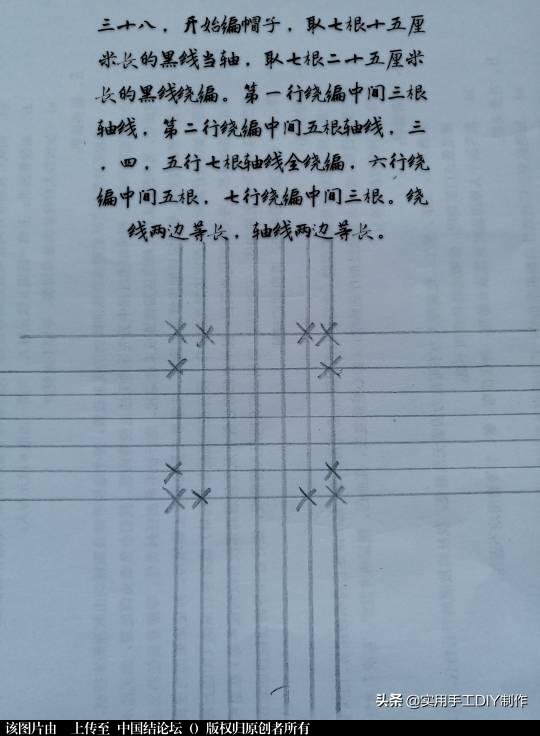 三十八，开始编帽子，取七根十五厘
米长的黑线当轴，取七根二十五厘米
长的黑线绕编。第一行绕编中间三根
轴线，第二行绕编中间五根轴线，三
，四，五行七根轴线全绕编，六行绕
编中间五根，七行绕编中间三根。绕
线两边等长，轴线两边等长。
头条 @实用手工DIY制作
该图片由 上传至 中国结论坛 () 版权归原创者所有